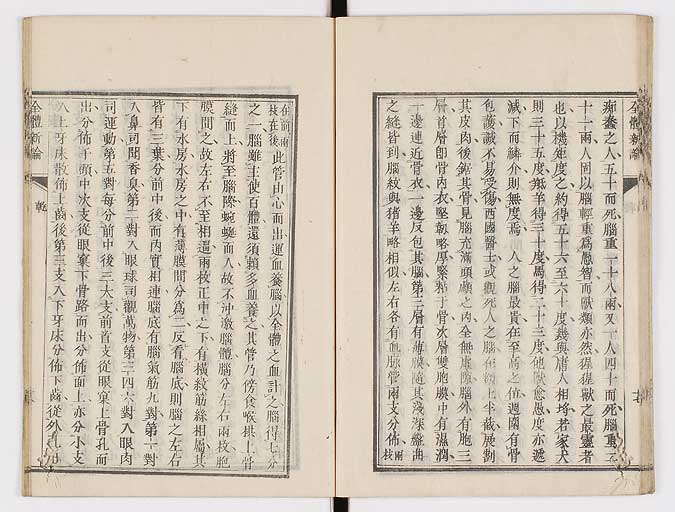 全體新論
痴蠢之人五十而死腦重一十八兩又一人四十而死腦重
十十兩人固以腦輕重爲愚智而獸類亦然猩猩獸之最靈者
也以機矩度之約得五十六至六十度幾與庸人相埒若家犬
則三十五度羝羊得三十度馬得二十三度他獸愈愚度亦遞
減下而鱗介則無度焉 人之腦最貴在至高之位週圍有骨
包護誠不易受傷西國醫士或觀死人之腦在額上平截展割
其皮肉後鋸其骨見腦充滿頭顱之內全無虛隙腦外有胞三
層首層卽骨內衣堅韌略厚緊粘于骨次層雙胞膜中有濕潤
一邊連近骨衣一邊反包其腦第三層有薄膜隨其淺深繼曲
之縫皆到腦紋與猪羊略相似左右各有血脉管兩支分佈兩枝
在前兩枝在後此管由心而出運血養腦以全體之血計之腦得七分
之一腦雖主使百體還須頼多血養之其管乃傍食喉拱上骨
縫而上將至腦際蜿蜒而入故不沖激腦體腦分左右兩枚胞
膜間之故左右不至相逼兩枚正中之下有橫紋筋絲相屬其
下有水房水房之中有薄膜間分爲二反看腦底則腦之左右
皆有三葉分前中後而內實相連腦底有腦氣筋九對第一對
入鼻司聞香臭第二對入眼球司觀萬物第三四六對入眼肉
司運動第五對每分前中後三大支前首支從眼窠上骨孔而
出分佈于頭中次支從眼窠下骨路而出分佈面上亦分小支
入上牙床散佈上齒後第三支入下牙床分佈下齒從外孔而
全體新論 乾